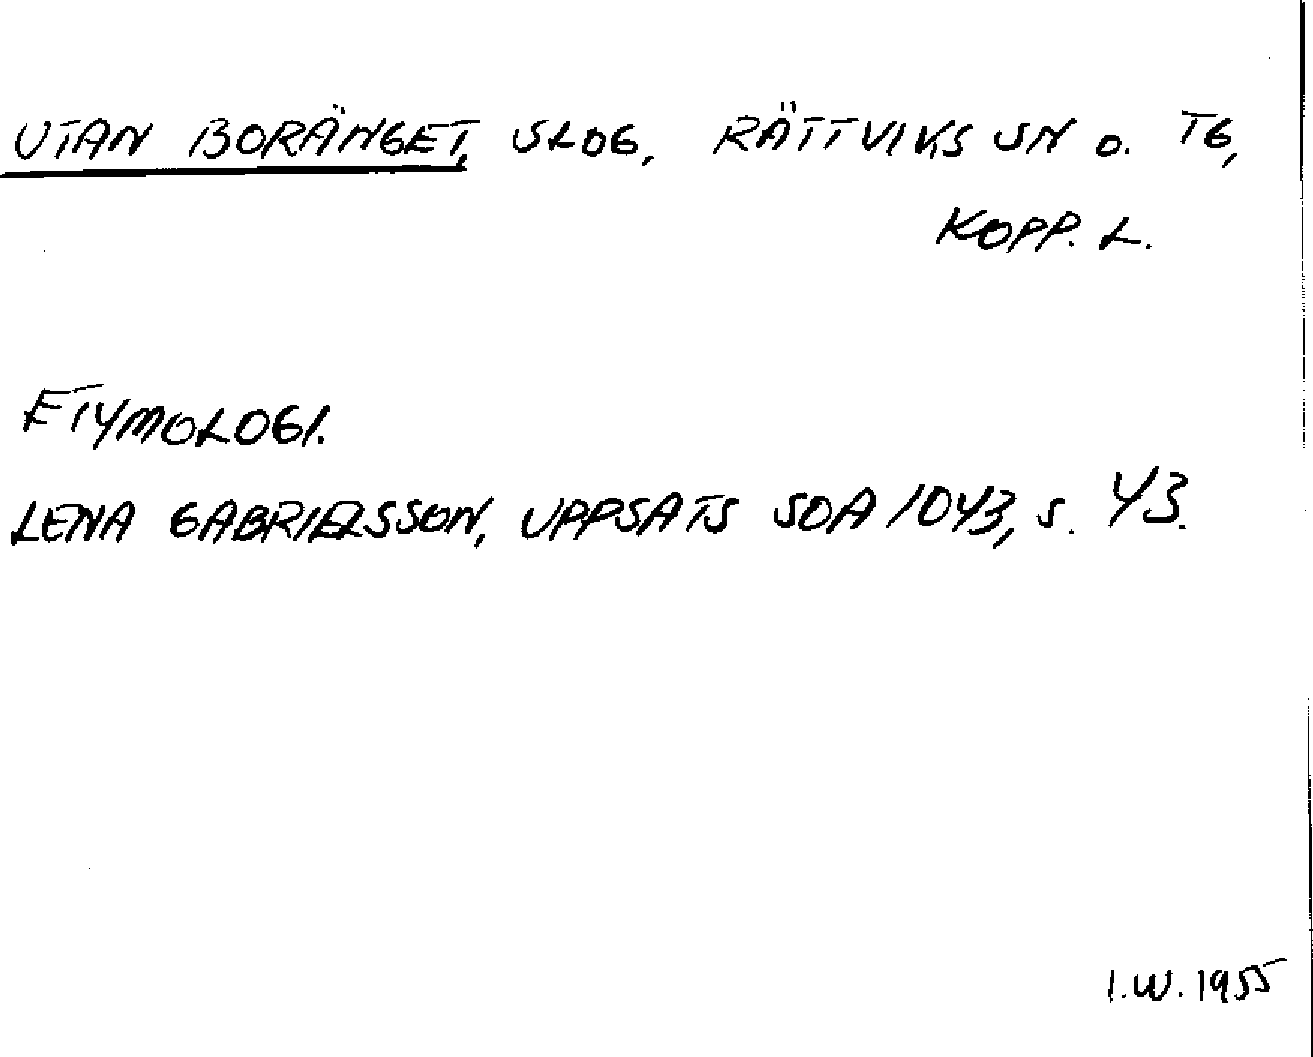 UTAN BORÄNGET, SLOG, RÄTTVIKS SN o. TG,
KOPP. L.
ETYMOLOGI.
LENA GABRIELSSON, UPPSATS SOA 1043, s. 43.
I.W. 1955